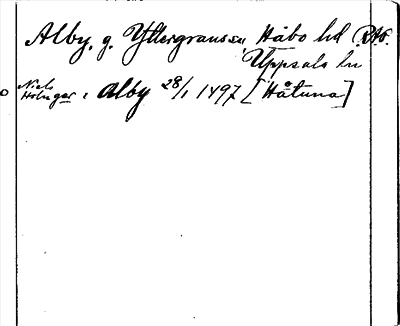 Alby, g. Yttergrans sn, Håbo hd RAÖ.
Uppsala ln
Niels
Holmger i Alby 28/1 1497 [Håtuna]